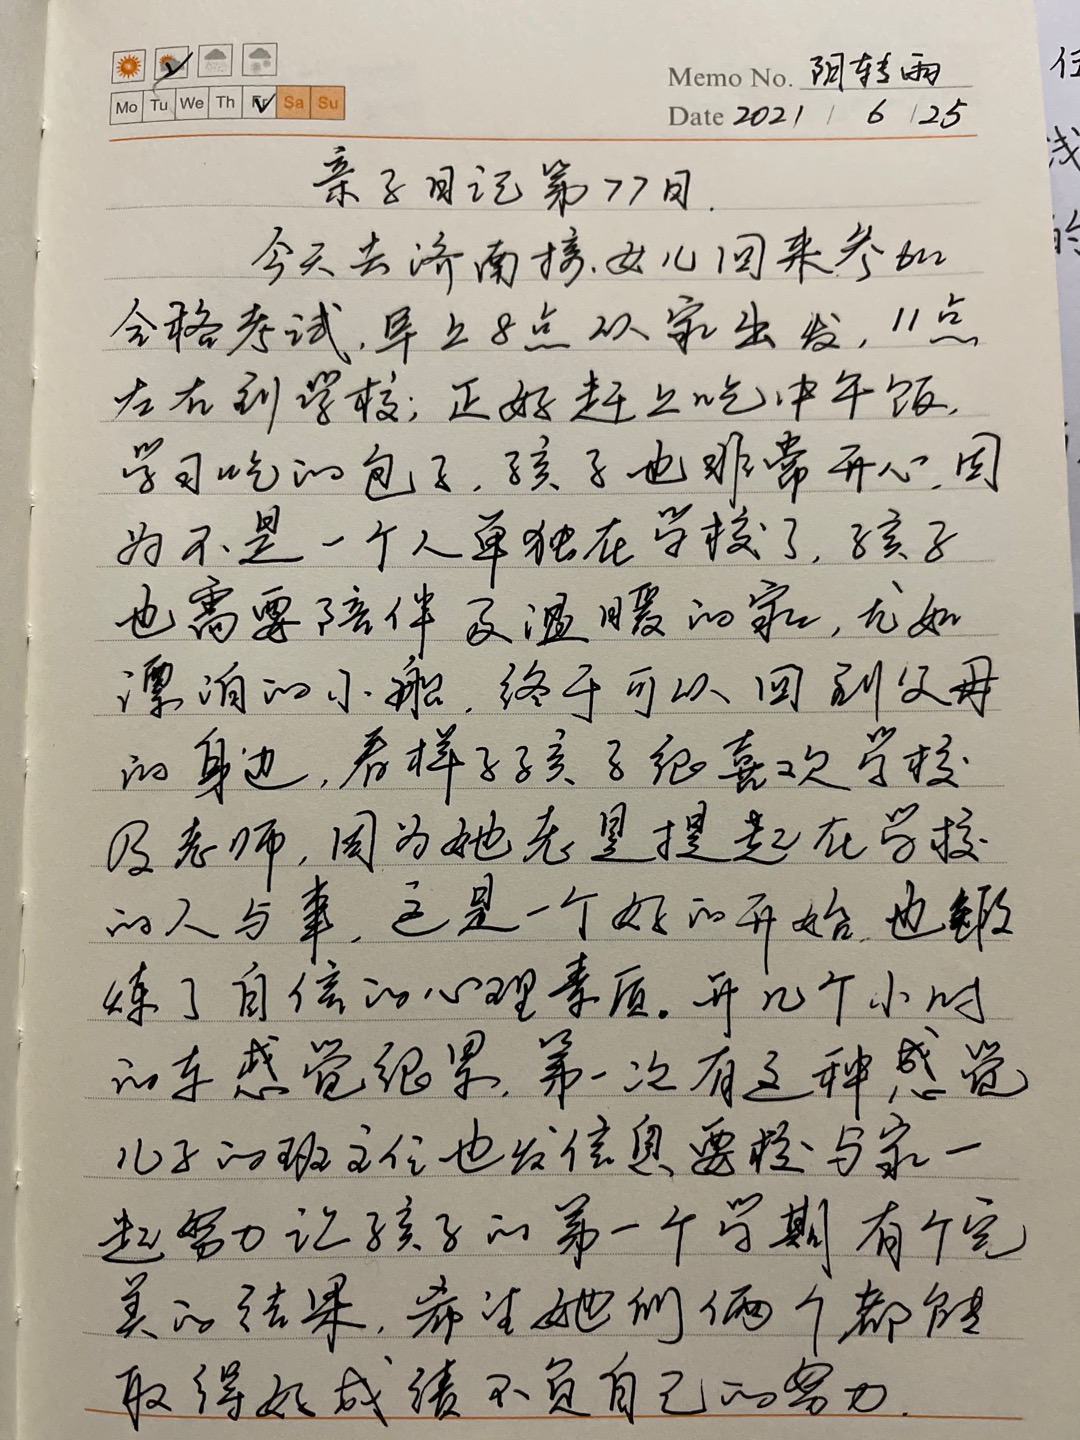 Memo No. 阴转雨
Mo Tu We Th Fr Sa Su
Date 2021 / 6 / 25
亲子日记第77日.
今天去济南接女儿回来参加
合格考试,早上8点从家出发,11点
左右到学校;正好赶上吃中午饭,
学习吃的包子,孩子也非常开心,因
为不是一个人单独在学校了,孩子
也需要陪伴及温暖的家,尤如
漂泊的小船,终于可以回到父母
的身边,看样子孩子很喜欢学校
及老师,因为她老是提起在学校
的人与事,这是一个好的开始,也锻
炼了自信的心理素质。开几个小时
的车感觉很累,第一次有这种感觉
儿子的班主任也发信息要校与家一
起努力让孩子的第一个学期有个完
美的结果,希望她们俩个都能
取得好成绩不负自己的努力.
浅
的